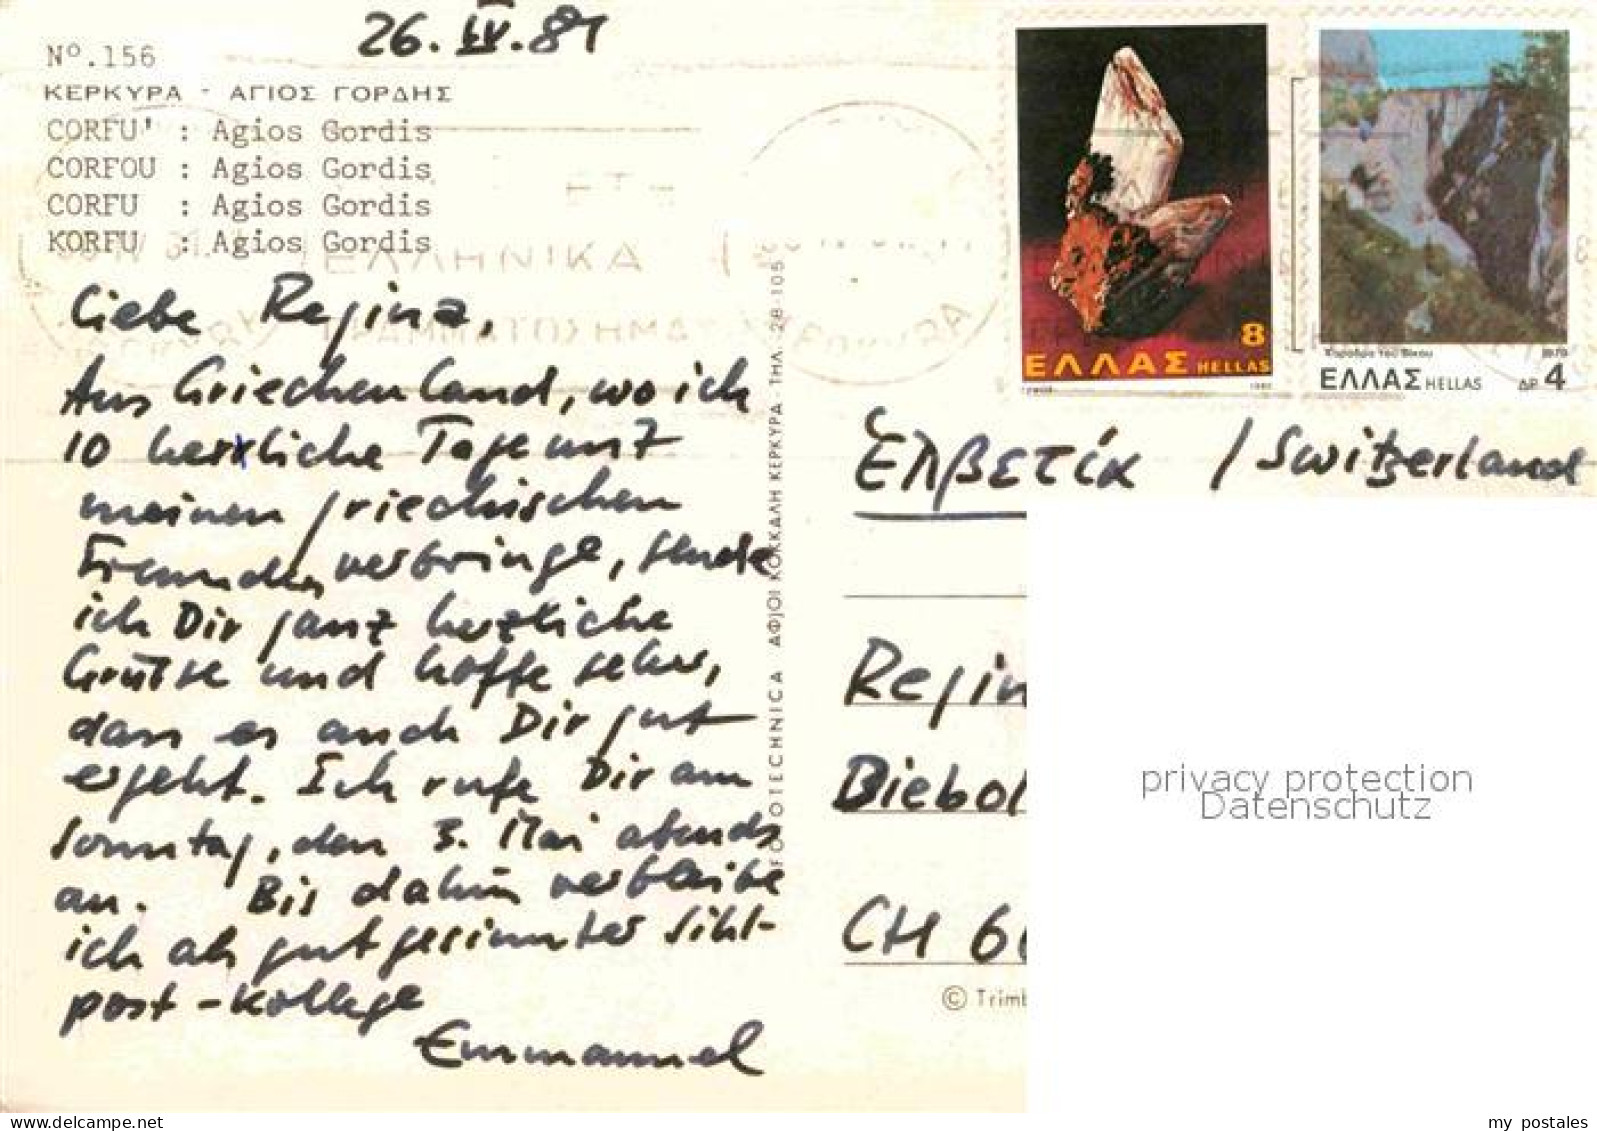 26. IV. 81
Nº.156
ΚΕΡΚΥΡΑ - ΑΓΙΟΣ ΓΟΡΔΗΣ
CORFU' : Agios Gordis
CORFOU : Agios Gordis
CORFU : Agios Gordis
KORFU : Agios Gordis
ΕΛΛΗΝΙΚΑ
ΓΡΑΜΜΑΤΟΣΗΜΑ
Liebe Regina,
Aus Griechenland, wo ich
10 herrliche Tage mit
meinen griechischen
Freunden verbringe, sende
ich Dir ganz herzliche
Grüsse und hoffe sehr,
dass es auch Dir gut
ergeht. Ich rufe Dir am
Sonntag, den 3. Mai abends
an. Bis dahin verbleibe
ich als gutgesinnter Sihl-
post-Kollege
Emmanuel
FOTOTECHNICA ΑΦΟΙ ΚΟΚΚΑΛΗ ΚΕΡΚΥΡΑ - ΤΗΛ. 28-105
8
ΕΛΛΑΣ HELLAS
1980
Χαράδρα του Βίκου 1979
ΕΛΛΑΣ HELLAS ΔΡ. 4
Ἑλβετία / Switzerland
Regin
Biebol
CH 6
© Trimb
privacy protection
Datenschutz
delcampe.net
my_postales